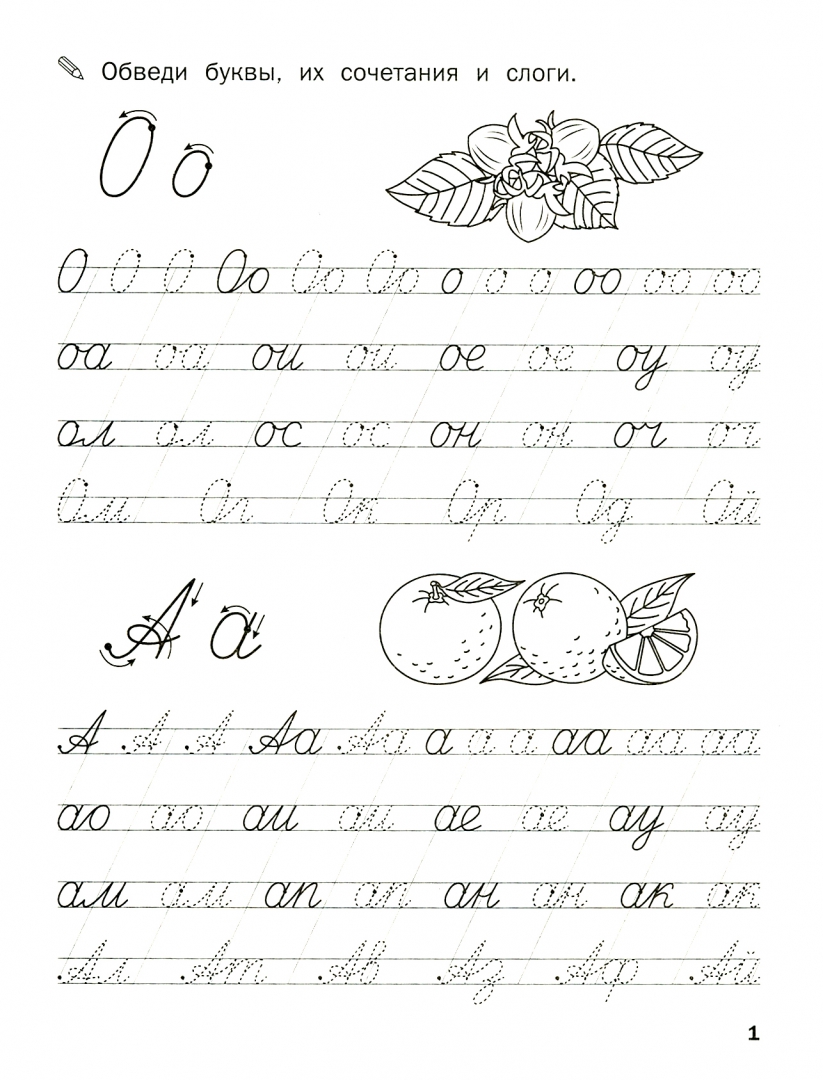 Обведи буквы, их сочетания и слоги.
О о
О О О Оо Оо Оо о о о оо оо оо
оа оа ои ои ое ое оу оу
ол ол ос ос он он оч оч
Ом Ог Ок Ор Од Ой
А а
А А А Аа Аа а а а аа аа аа
ао ао аи аи ае ае ау ау
ам ам ап ап ан ан ак ак
Ал Ат Ав Аз Аф Ай
1